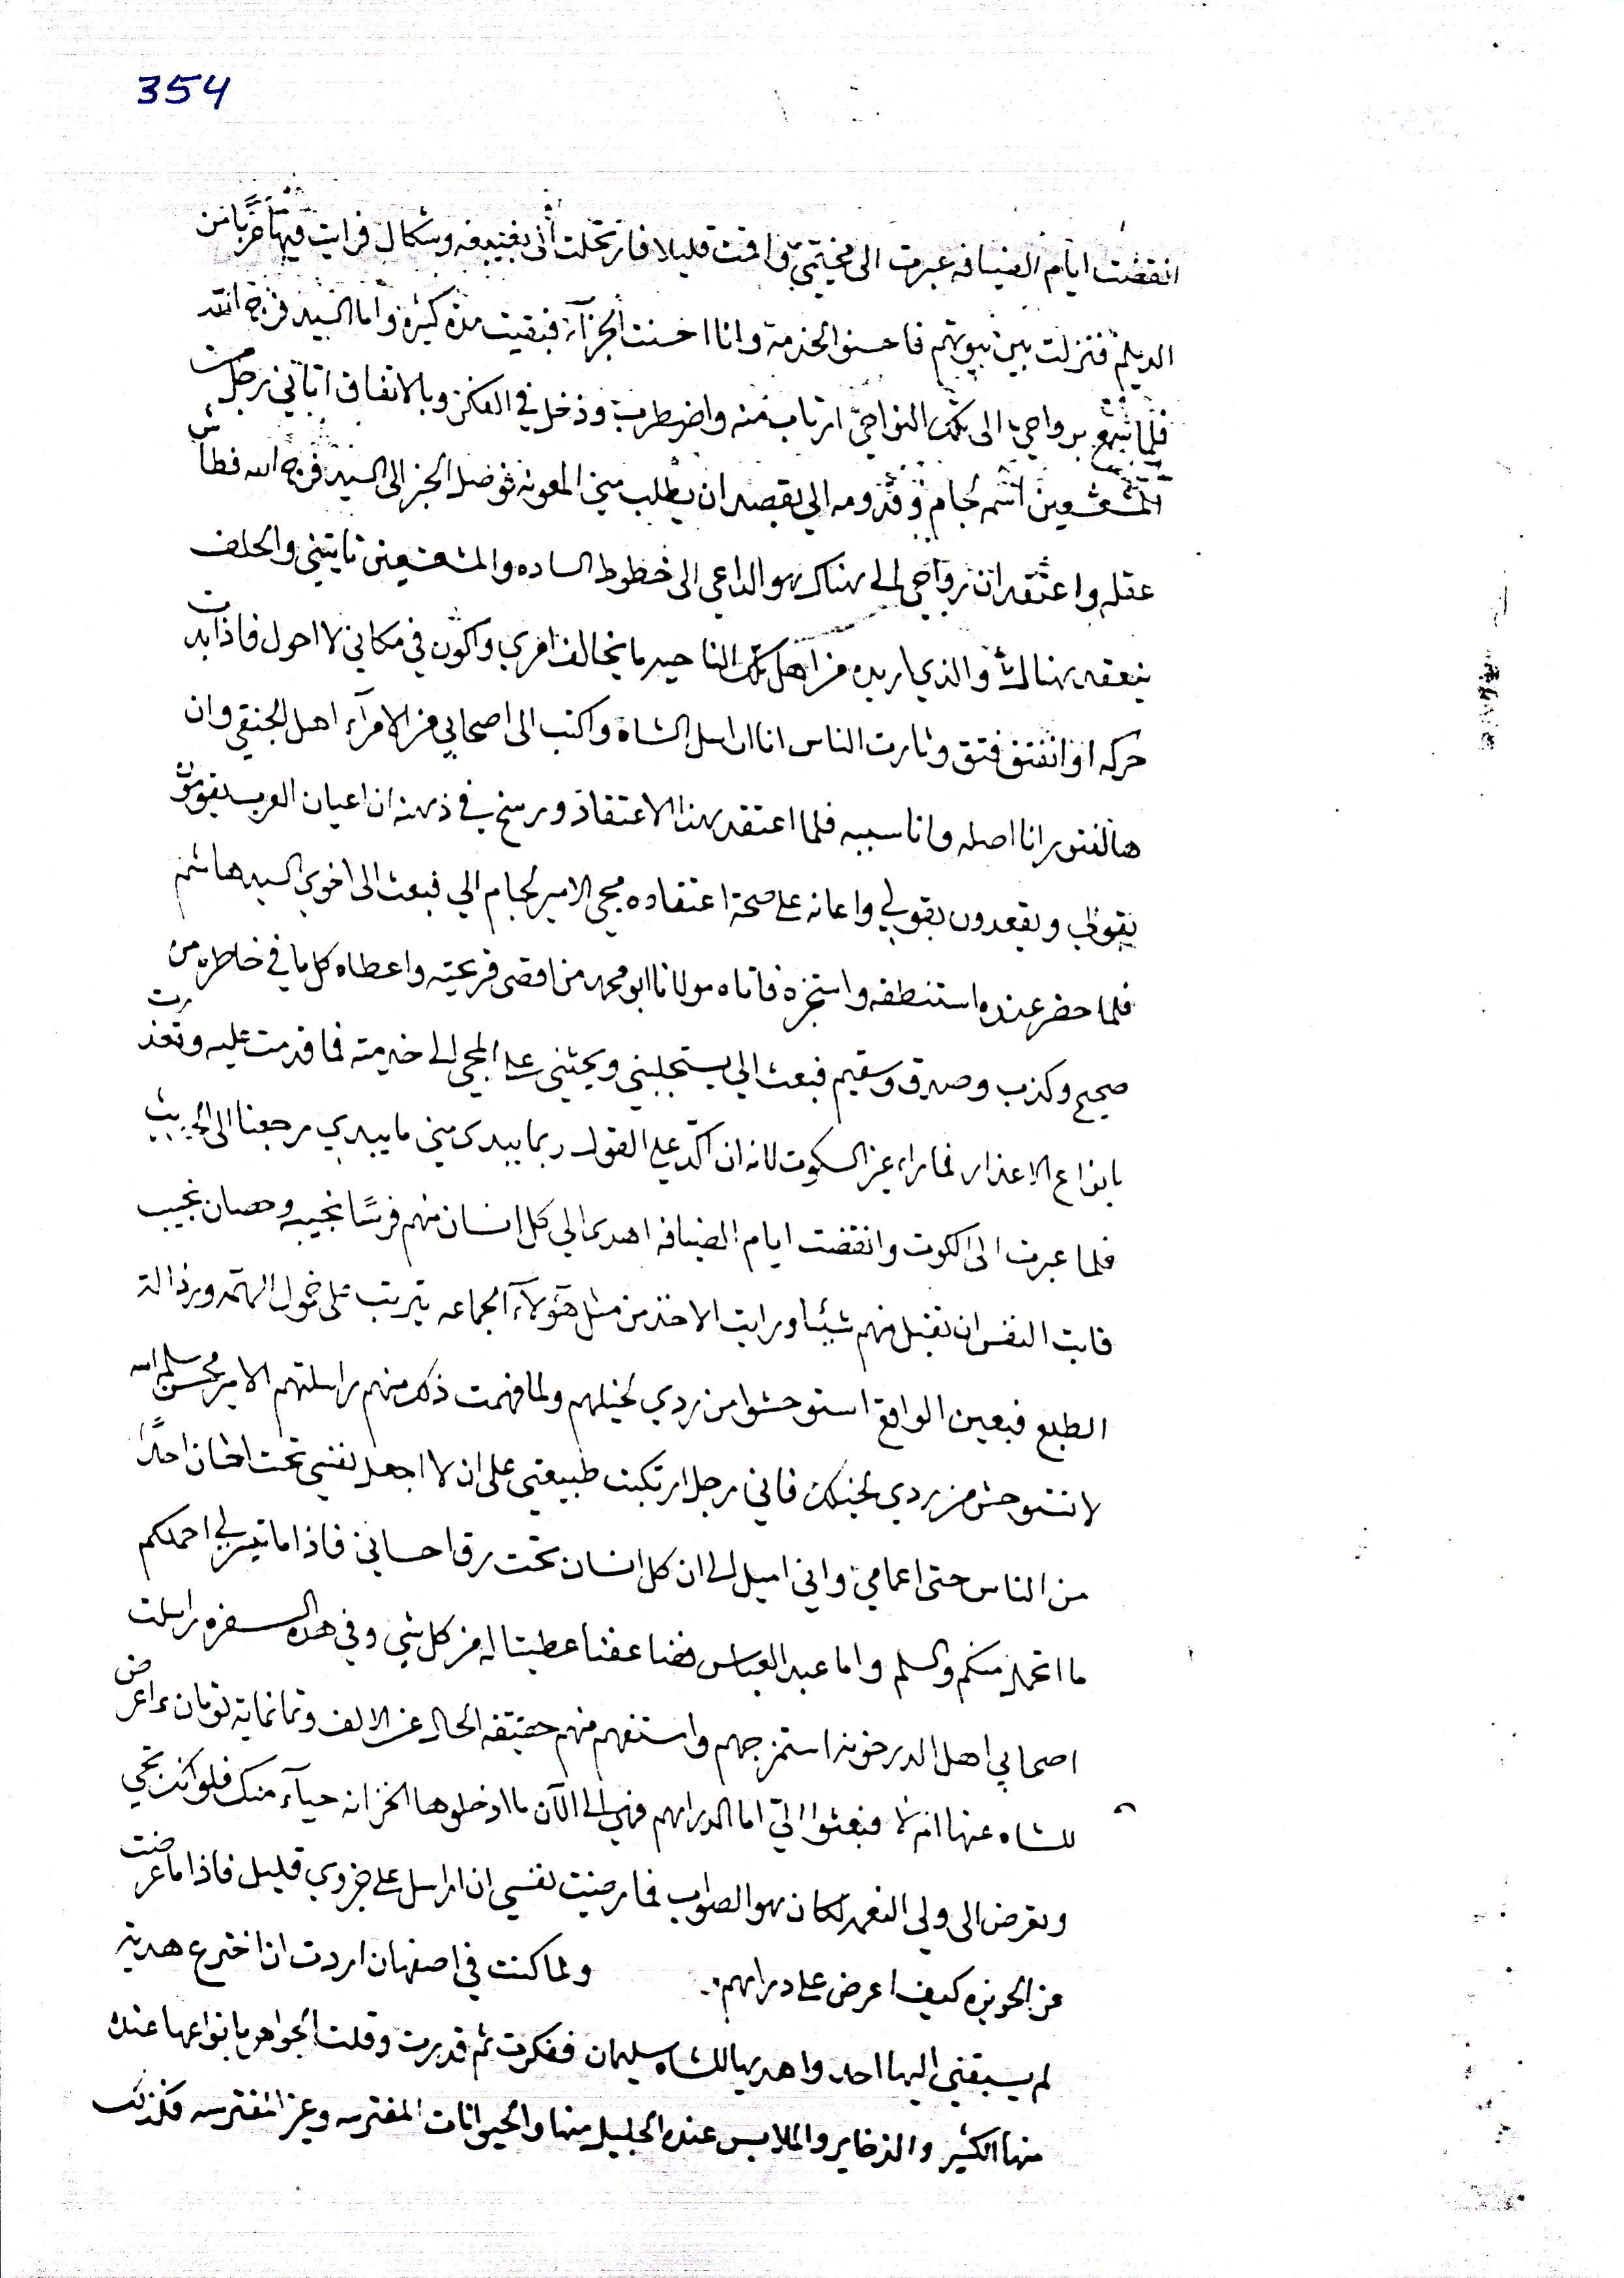 354
انقضت ايام الضيافه عبرت الى مخيتمي واقمت قليلا فارتحلت الى بغيبغه وشكال فرايت فيها عربا من
الديلم فنزلت بين بيوتهم فاحسنوا الخدمة وانا احسنت الجزآء فبقيت مدة كثيرة واما السيد فرج الله
فلما سمع برواحي الى تلك النواحي ارتاب منه واضطرب ودخل في الفكر وبالاتفاق اتاني رجل من
المشعشعين اسمه لجام وقدومه الي بقصد ان يطلب مني المعونه فوصل الخبر الى السيد فرج الله فطاش
عقله واعتقد ان رواحي الى هناك هو الداعي الى خطوط الساده والمشعشعين تاتيني والحلف
ينعقد هناك والذي اريده من اهل تلك الناحيه ما يخالف امري واكون في مكاني لا احول فاذا بدت
حركه او انفتق فتق وثارت الناس انا اراسل الشاه واكتب الى اصحابي من الامرآء اهل الجنقي وان
هالفتور انا اصله وانا سببه فلما اعتقد هذا الاعتقاد ورسخ في ذهنه ان اعيان العرب يقومون
بقولي ويقعدون بقولي واعانه على صحة اعتقاده مجي الامير لجام الي فبعث الى اخوي السيد هاشم
فلما حضر عنده استنطقه واستخبره فاتاه مولانا ابو محمد من اقصى قريحته واعطاه كل ما في خاطره من
صحيح وكذب وصدق وسقيم فبعث الي يستجلبني ويحثني على المجي الى خدمته فما قدمت عليه وتعذرت
بانواع الاعذار فما راى غير السكوت لانه ان اكد علي القول ربما يبدى مني ما يبدي رجعنا الى الحديث
فلما عبرت الى الكوت وانقضت ايام الضيافه اهدى الي كل انسان منهم فرسًا نجيبه وحصان نجيب
فابت النفس ان تقبل منهم شيئا ورايت الاخذ من مثل هؤلآء الجماعه يترتب على خمول الهمه ورذالة
الطبع فبعين الواقع استوحشوا من ردي لخيلهم ولما فهمت ذلك منهم راسلتهم الامير محسن سلمه الله
لا تستوحش من ردي لخيلك فاني رجل ارتكبت طبيعتي على ان لا اجعل نفسي تحت احسان احدًا
من الناس حتى اعمامي واني اميل الى ان كل انسان تحت رق احساني فاذا ما تيسر لي احملكم
ما اتحمل منكم والسلم واما عبد العباس فضاعفنا عطيتنا له من كل شي وفي هذه السفره راسلت
اصحابي اهل الدرخونه استمزجهم واستفهم منهم حقيقه الحال عن الالف وثمانماية تومان ءاعرض
للشاه عنها ام لا فبعثوا الي اما الدراهم فهي الى الآن ما ادخلوها الخزانه حيآء منك فلو انك تجي
وتعرض الى ولي النعمه لكان هو الصواب فما رضيت نفسي ان اراسل على جزوي قليل فاذا ما عرضت
عن الحويزه كيف اعرض على دراهم . ولما كنت في اصفهان اردت ان اخترع هدية
لم يسبقني اليها احد واهديها للشاه سليمان ففكرت ثم قدرت وقلت الجواهر بانواعها عنده
منها الكثير والذخاير والملابس عنده الجليل منها والحيوانات المفترسه وغير المفترسه فكذلك